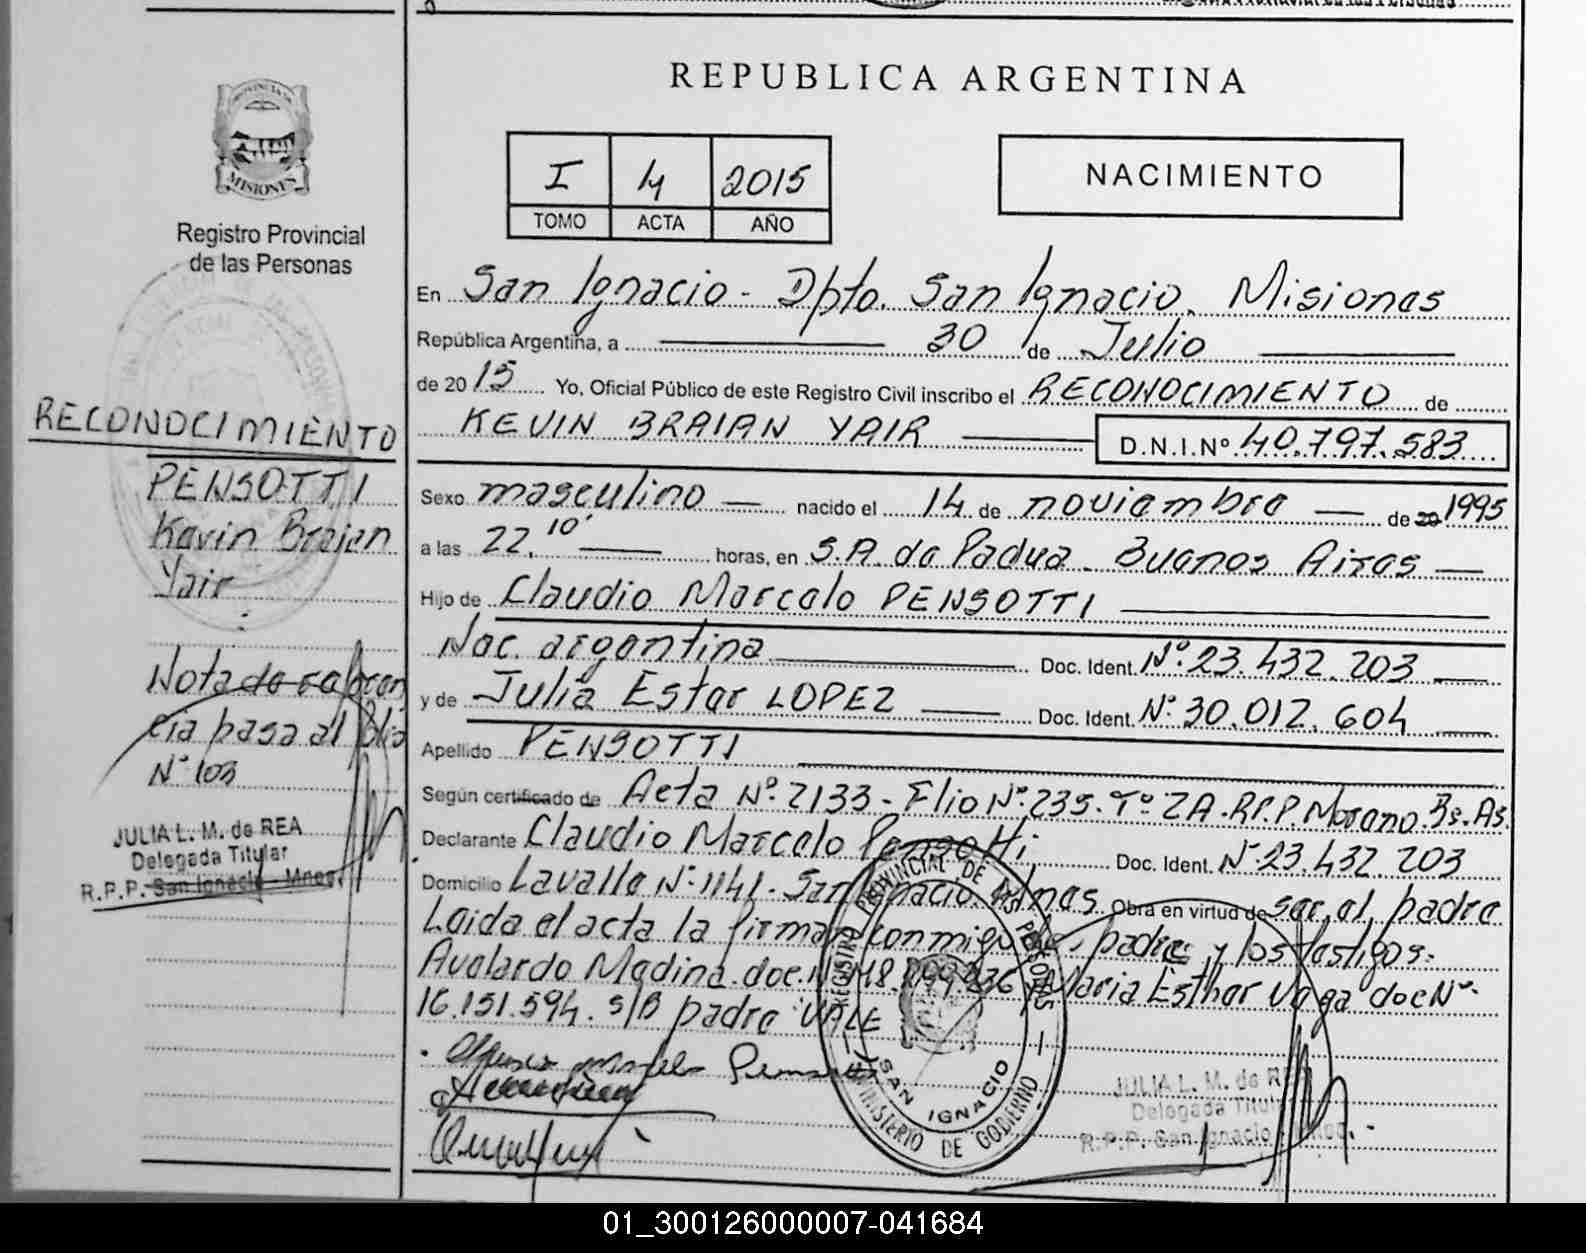 REPUBLICA ARGENTINA
PROVINCIA DE
MISIONES
Registro Provincial
de las Personas
I 4 2015
TOMO ACTA AÑO
NACIMIENTO
En San Ignacio - Dpto. San Ignacio. Misiones
República Argentina, a 30 de Julio
de 2015 Yo, Oficial Público de este Registro Civil inscribo el RECONOCIMIENTO de
KEVIN BRAIAN YAIR D.N.I.Nº 40.797.583
Sexo masculino nacido el 14 de noviembre de 1995
a las 22,10' horas, en S.A. de Padua. Buenos Aires
Hijo de Claudio Marcelo PENSOTTI
Nac. argentina Doc. Ident. Nº 23.432.203
y de Julia Ester LOPEZ Doc. Ident. Nº 30.012.604
Apellido PENSOTTI
Según certificado de Acta Nº 2133 - Flio Nº 235. Tº 2A. R.P.P. Moreno. Bs. As.
Declarante Claudio Marcelo Pensotti, Doc. Ident. Nº 23.432.203
Domicilio Lavalle Nº 1141. San Ignacio. Mnes Obra en virtud de ser el padre
Leida el acta la firman conmigo padre y los testigos.
Avelardo Medina. doc. Maria Esther Vega doc Nº
16.151.594. s/B padre VALE
RECONOCIMIENTO
PENSOTTI
Kevin Braian
Yair
Nota de referen
cia pasa al folio
Nº 103
JULIA L. M. de REA
Delegada Titular
R.P.P. San Ignacio - Mnes.
REGISTRO PROVINCIAL DE LAS PERSONAS
SAN IGNACIO
MINISTERIO DE GOBIERNO
JULIA L. M. de REA
Delegada Titular
R.P.P. San Ignacio - Mnes.
01_300126000007-041684